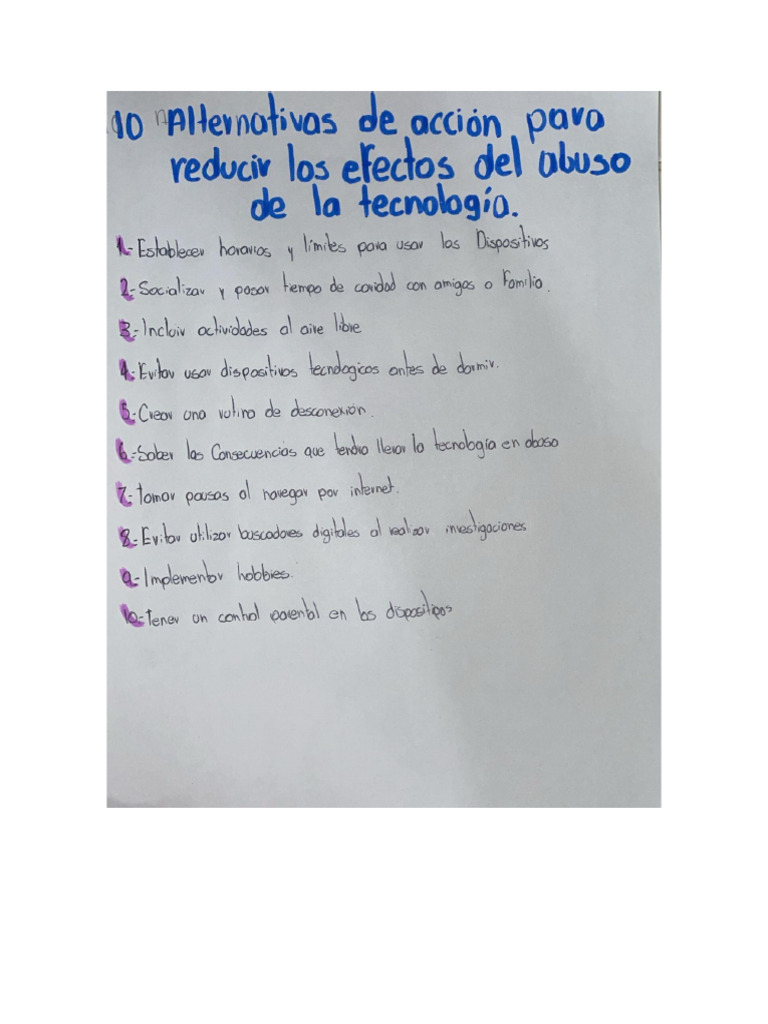 10 Alternativas de acción para
reducir los efectos del abuso
de la tecnología.
1.- Establecer horarios y límites para usar los Dispositivos
2.- Socializar y pasar tiempo de caridad con amigos o Familia.
3.- Incluir actividades al aire libre
4.- Evitar usar dispositivos tecnologicos antes de dormir.
5.- Crear una rutina de desconexión.
6.- Saber las Consecuencias que tendra llevar la tecnología en abuso
7.- tomar pausas al navegar por internet.
8.- Evitar utilizar buscadores digitales al realizar investigaciones
9.- Implementar hobbies.
10.- tener un control parental en los dispositipos